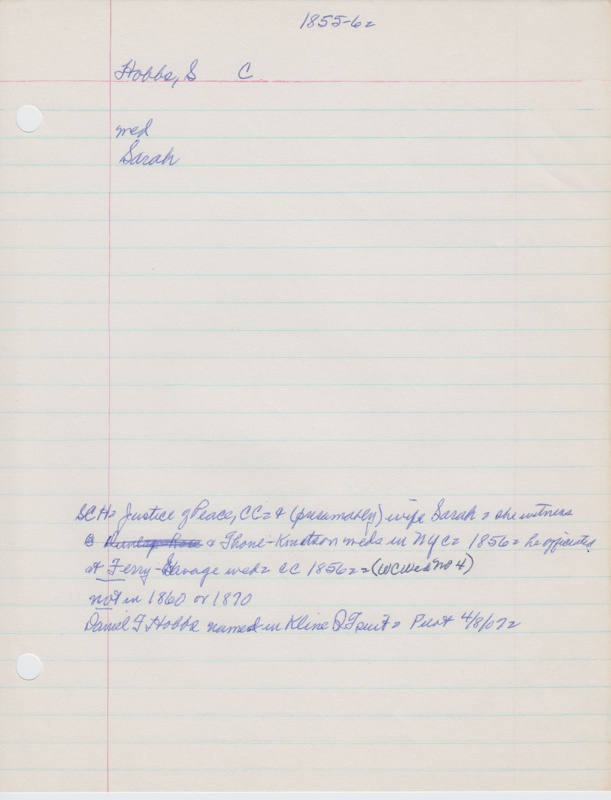 1855-6=
Hobbs, S C.
med
Sarah
SCH= Justice of Peace, CC= & (presumably) wife Sarah = she witness
@ & Thone-Knutson meds in NYC= 1856= he officiated
at Ferry-Savage wed= CC 1856== (WCWed No 4)
not in 1860 or 1870
Daniel F Hobbs named in Kline Q Fruit= Pilot 4/8/07=